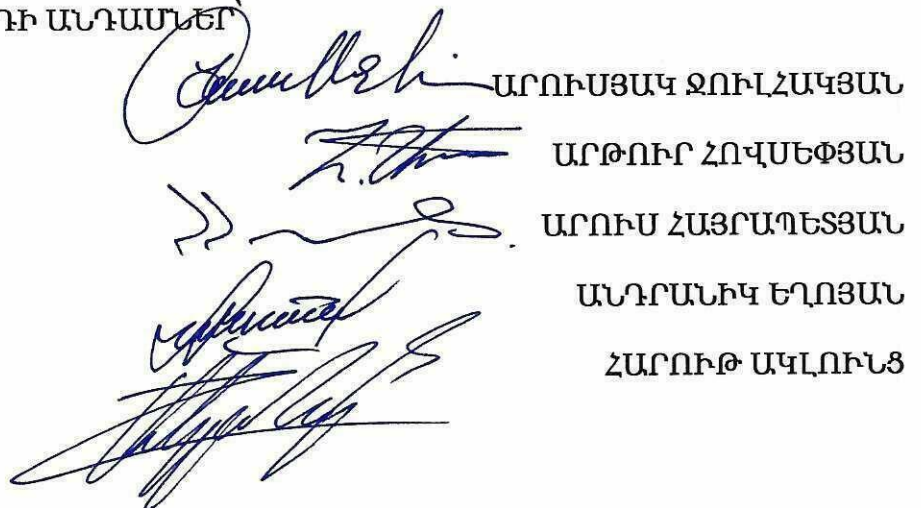 ԴԻ ԱՆԴԱՄՆԵՐ՝
ԱՐՈՒՍՅԱԿ ՋՈՒԼՀԱԿՅԱՆ
ԱՐԹՈՒՐ ՀՈՎՍԵՓՅԱՆ
ԱՐՈՒՍ ՀԱՅՐԱՊԵՏՅԱՆ
ԱՆԴՐԱՆԻԿ ԵՂՈՅԱՆ
ՀԱՐՈՒԹ ԱԿԼՈՒՆՑ